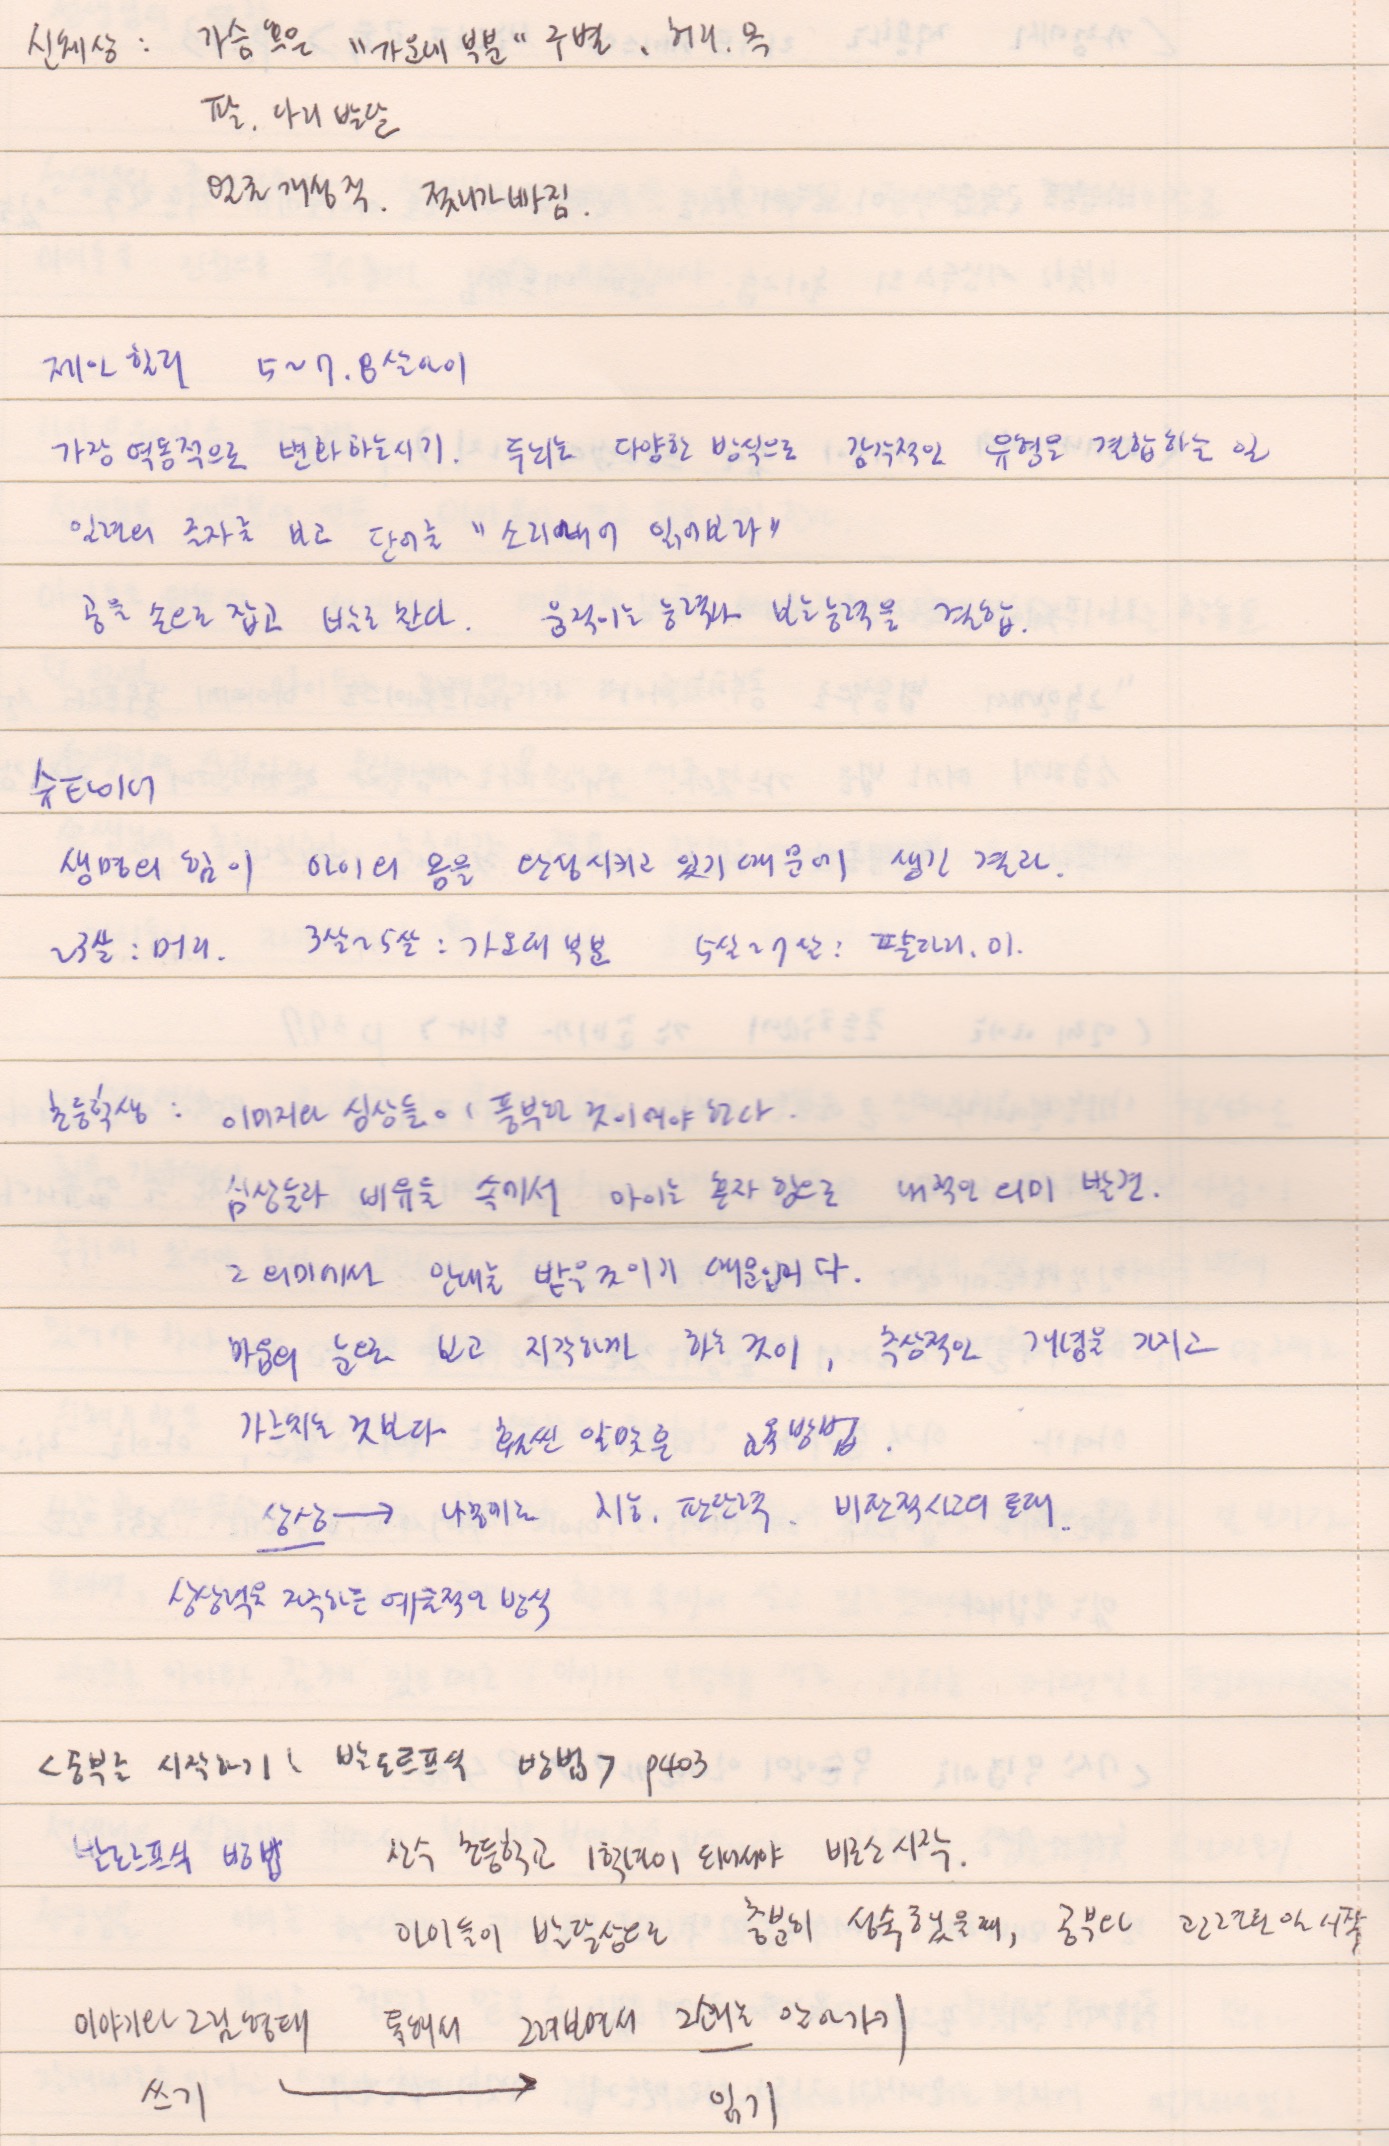 신체상 : 가슴 혹은 "가운데 부분" 구별, 허리. 목
팔. 다리 발달
얼굴 개성적. 젖니가 빠짐.
제인 힐리 5~7.8살 아이
가장 역동적으로 변화하는 시기. 두뇌는 다양한 방식으로 감각적인 유형을 결합하는 일
일련의 글자를 보고 단어를 "소리내어 읽어보라"
공을 손으로 잡고 발로 찬다. 움직이는 능력과 보는 능력을 결합.
슈타이너
생명의 힘이 아이의 몸을 단당시키고 있기 때문에 생긴 결과.
~3살 : 머리. 3살~5살 : 가운데 부분 5살~7살 : 팔다리. 이.
초등학생 : 이미지와 심상들이 풍부한 것이어야 한다.
심상들과 비유들 속에서 아이는 혼자 힘으로 내적인 의미 발견.
그 의미에서 안내를 받을 것이기 때문입니다.
마음의 눈으로 보고 지각하게끔 하는 것이, 추상적인 개념을 가지고
가르치는 것보다 훨씬 알맞은 교육방법.
상상 → 나중에 지능. 판단력. 비판적 사고의 토대.
상상력을 자극하는 예술적인 방식
<공부를 시작하기 : 발도르프식 방법> p403
발도르프식 방법 산수 초등학교 1학년이 되어서야 비로소 시작.
아이들이 발달상으로 충분히 성숙했을 때, 공부와 관련된 일 시작
이야기와 그림 형태 통해서 그려보면서 글씨를 알아가기
쓰기 → 읽기